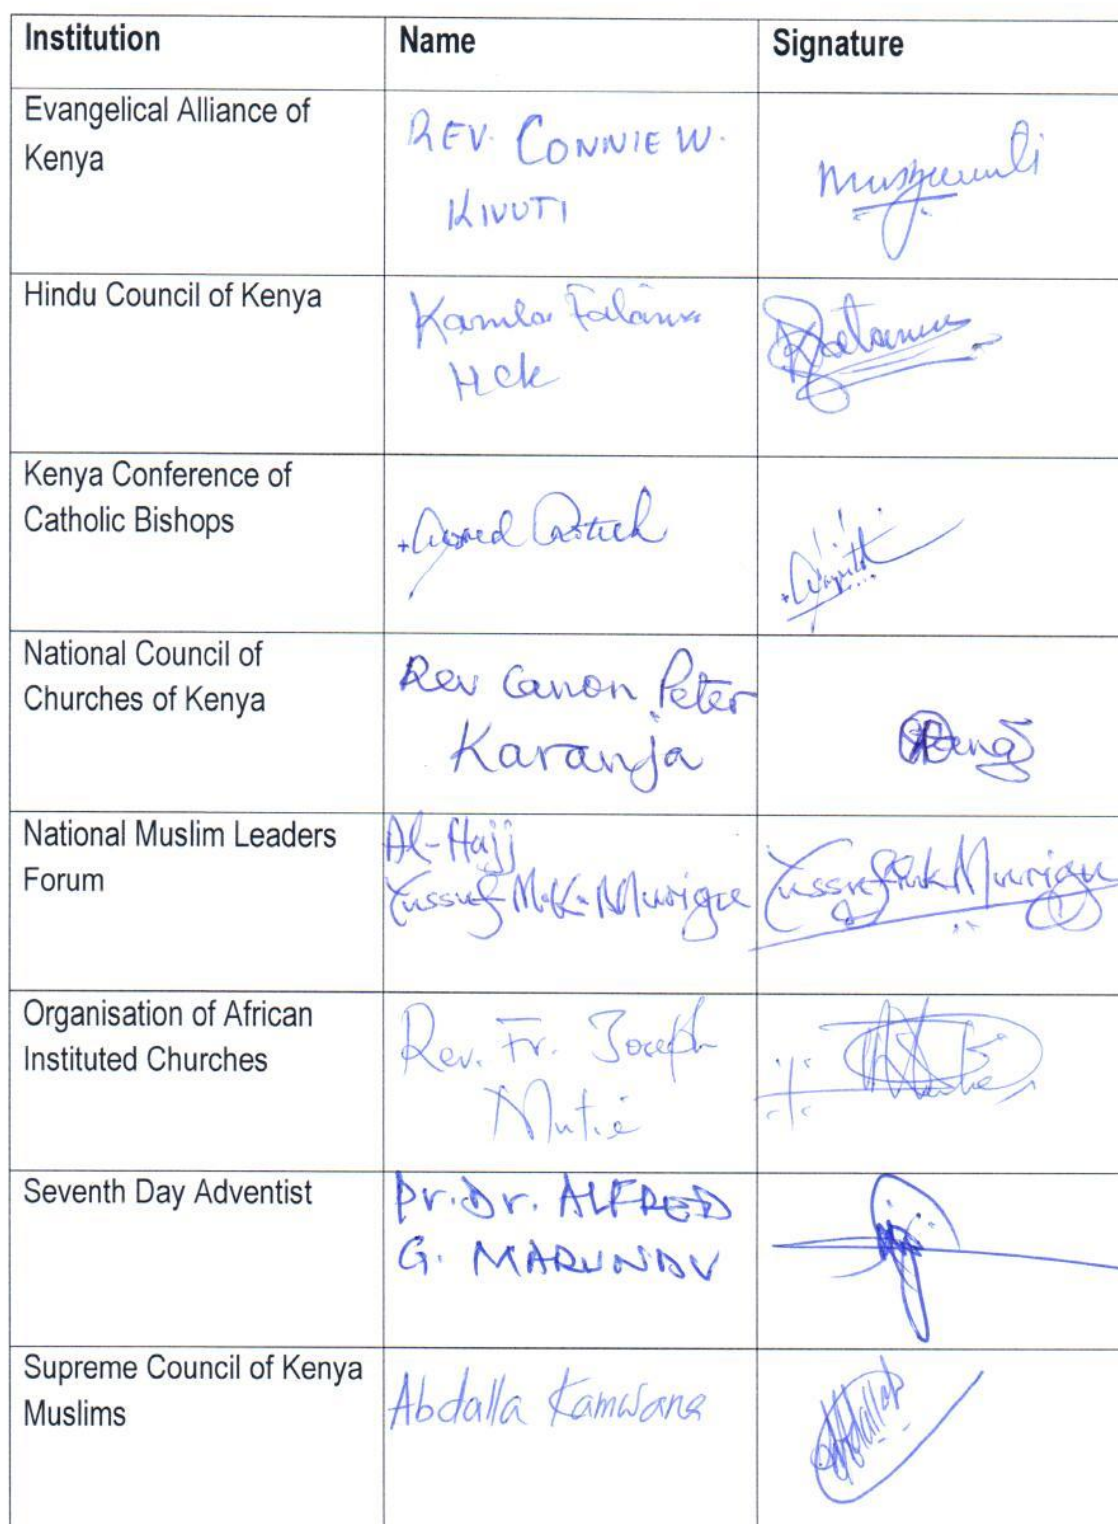 Institution Name Signature
Evangelical Alliance of
Kenya
REV. CONNIE W.
KIVUTI
Hindu Council of Kenya
Kamla
HCK
Kenya Conference of
Catholic Bishops
National Council of
Churches of Kenya
Rev Canon Peter
Karanja
National Muslim Leaders
Forum
Al-Hajj
Yussuf M.K. Murigu
Yussuf Murigu
Organisation of African
Instituted Churches
Rev. Fr. Joseph
Mutie
Seventh Day Adventist
Pr. Dr. ALFRED
G. MARUNDU
Supreme Council of Kenya
Muslims
Abdalla Kamwana
Abdalla